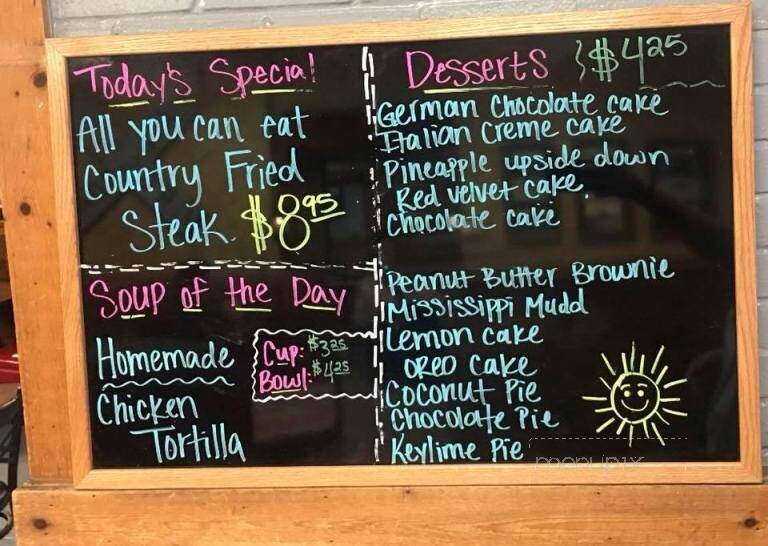 Today's Special
All you can eat
Country Fried
Steak. $8.95
Soup of the Day
Homemade
Chicken
Tortilla
Cup: $3.25
Bowl: $4.25
Desserts $4.25
German Chocolate cake
Italian Creme cake
Pineapple upside down
Red velvet cake
Chocolate cake
Peanut Butter Brownie
Mississippi Mudd
Lemon cake
OREO Cake
Coconut Pie
Chocolate Pie
Keylime Pie
menupix